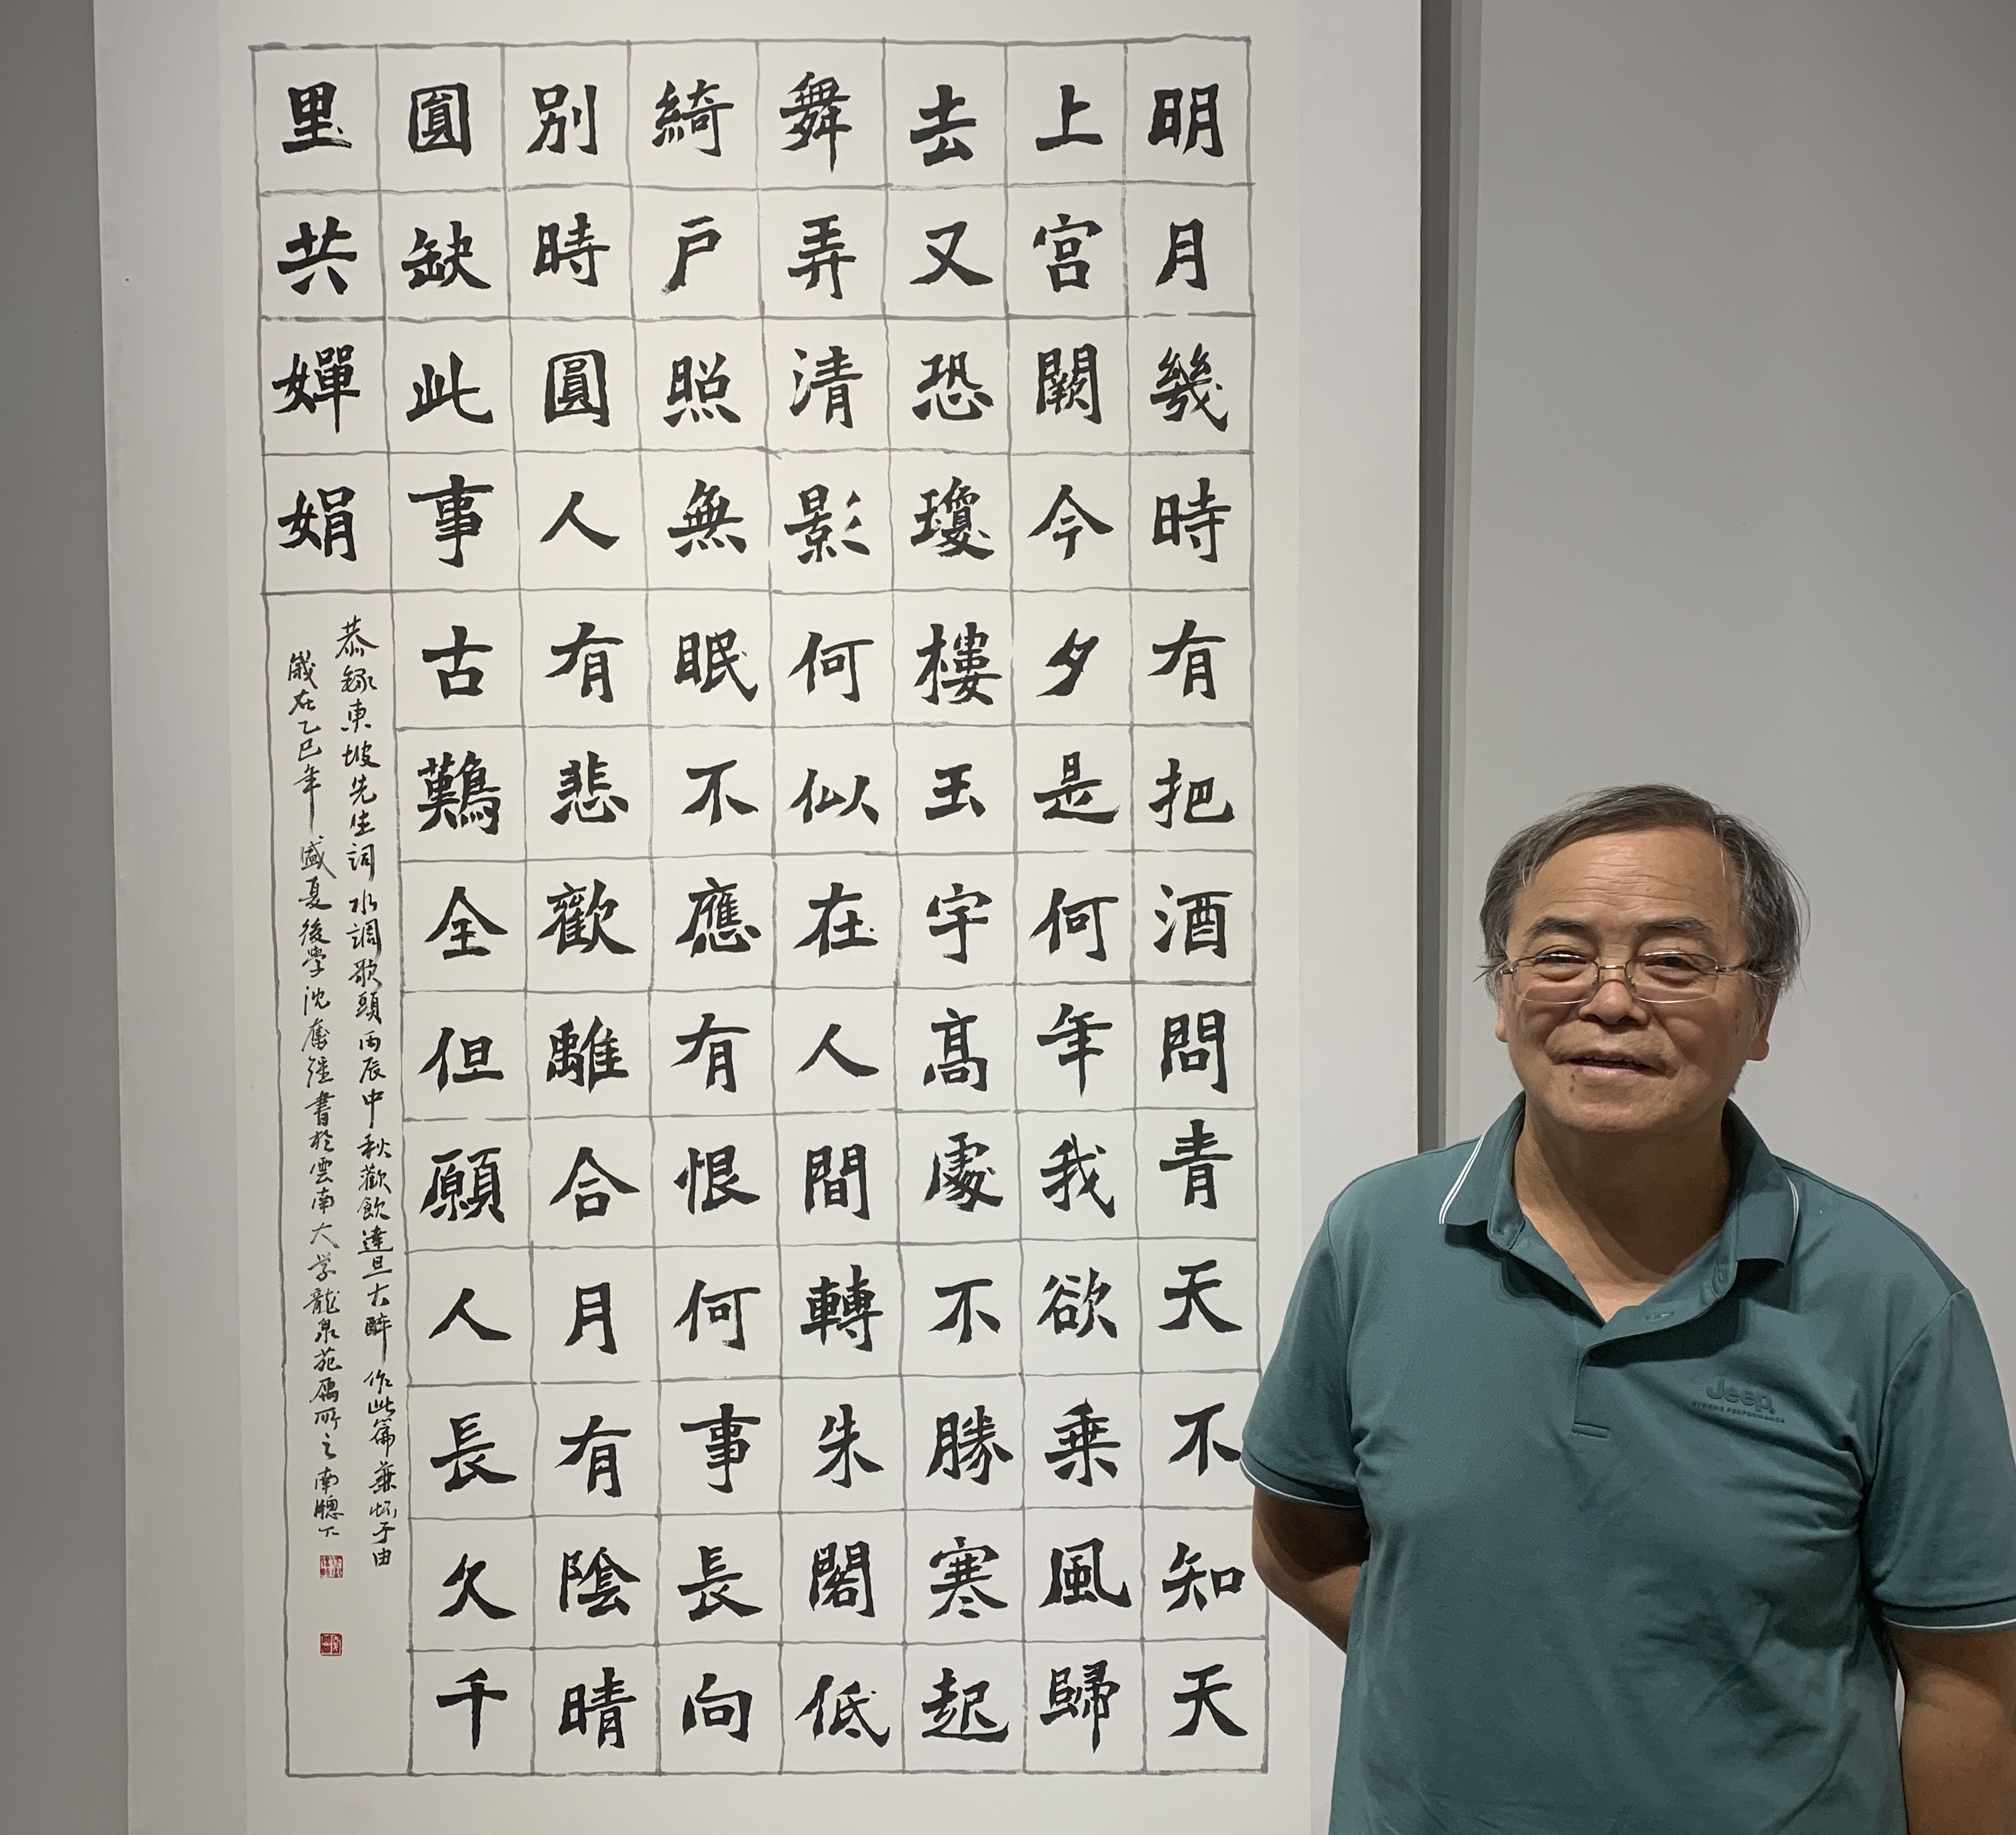 明月幾時有把酒問青天不知天
上宮闕今夕是何年我欲乗風歸
去又恐瓊樓玉宇高處不勝寒起
舞弄清影何似在人間轉朱閣低
綺戶照無眠不應有恨何事長向
別時圓人有悲歡離合月有陰晴
圓缺此事古難全但願人長久千
里共嬋娟
恭録東坡先生詞水調歌頭丙辰中秋歡飲達旦大醉作此篇兼怀子由
歲在乙巳年盛夏後學沈書於雲南大学龍泉苑寓所之南牕下
Jeep